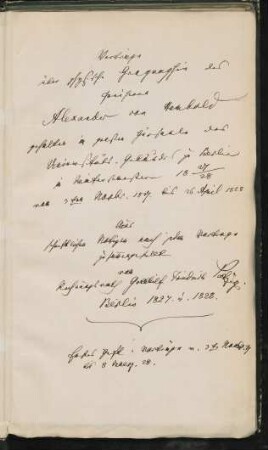 Vorträge
über physische Geographie des
Freiherrn
Alexander von Humbold
gehalten im großen Hörsaale des
Universitäts-Gebäudes zu Berlin
im Wintersemester 18 27/28
vom 3ten Novbr. 1827 bis 26 April 1828
Aus
schriftlichen Notizen nach jedem Vortrage
zusammengestellt
von
Gustav Friedrich
Berlin 1827 u. 1828.
Erstes Heft: Vorträge v. 3ten Novbr. 27
bis 28.